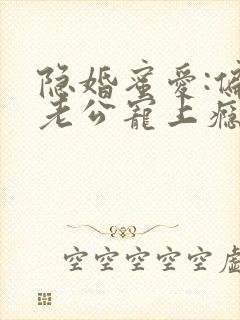 隐婚蜜爱:偏
老公宠上瘾
空空空空空虚